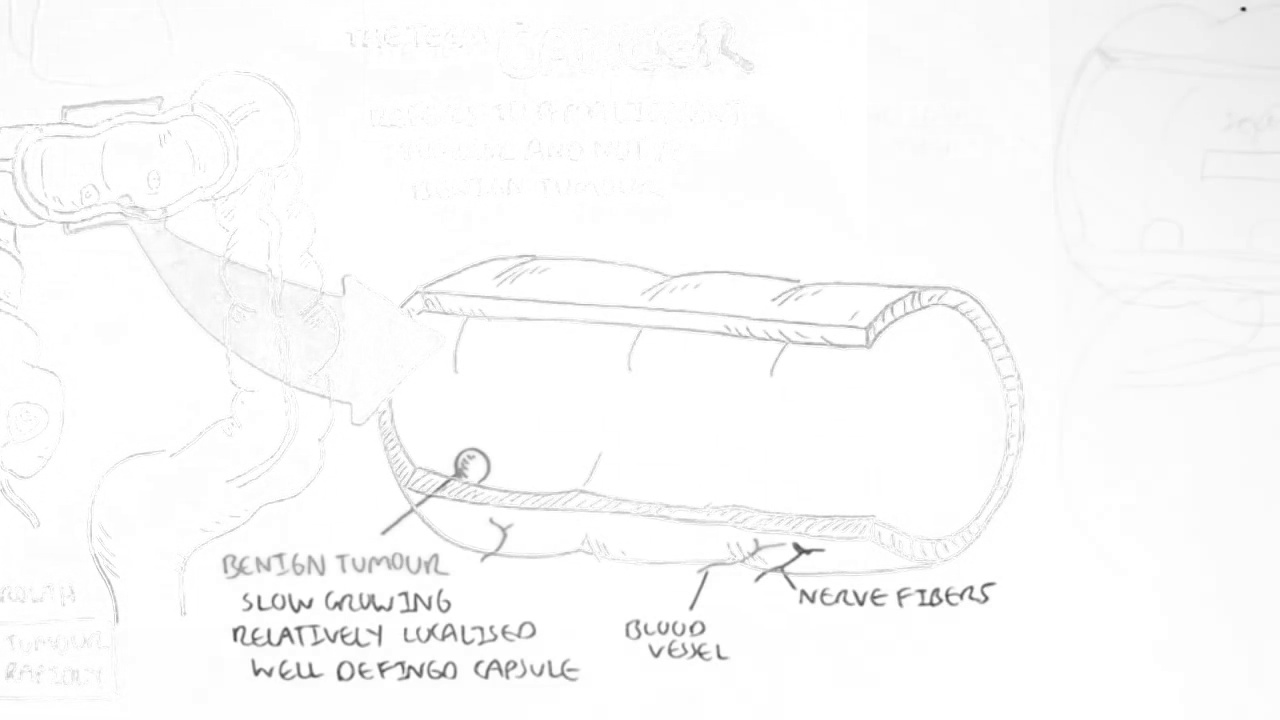 THE TERM CANCER
REFERS TO A MALIGNANT
TUMOUR AND NOT A
BENIGN TUMOUR
BENIGN TUMOUR
SLOW GROWING
RELATIVELY LOCALISED
WELL DEFINED CAPSULE
BLOOD
VESSEL
NERVE FIBERS
TUMOUR
RAPIDLY